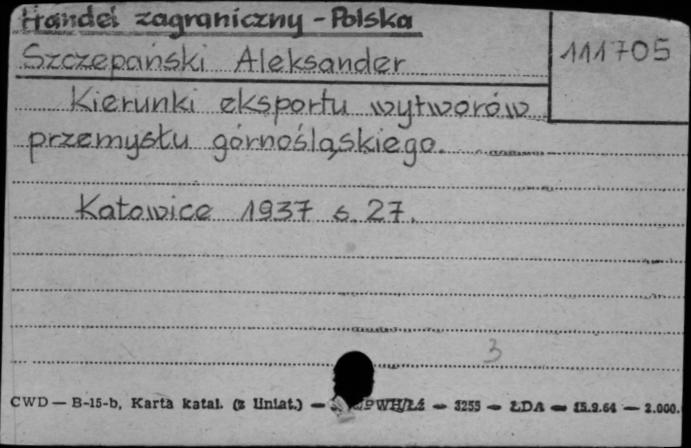 Handel zagraniczny - Polska
111705
Szczepański Aleksander
Kierunki eksportu wytworów
przemysłu górnośląskiego.
Katowice 1937 s. 27.
3
CWD — B-15-b, Karta katal. (z liniat.) — PWH/Łź — 3255 — ŁDA — 15.9.64 — 2.000.